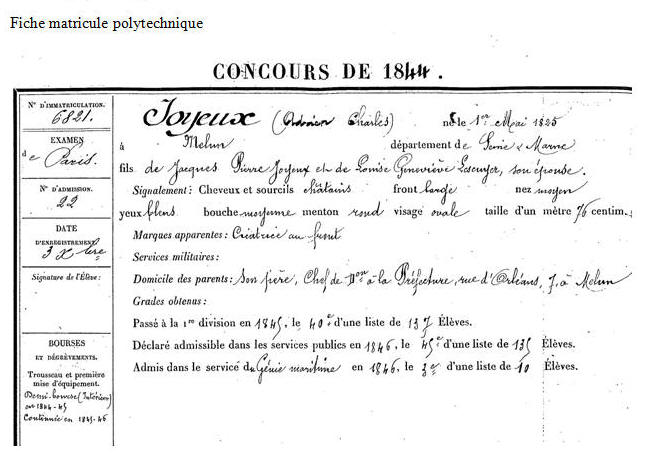 Fiche matricule polytechnique
CONCOURS DE 1844.
N° D'IMMATRICULATION.
6821.
EXAMEN
de Paris.
N° D'ADMISSION.
22
DATE
D'ENREGISTREMENT.
3 Xbre
Signature de l'Élève:
BOURSES
ET DÉGRÈVEMENTS.
Trousseau et première
mise d'équipement.
Demi-bourse (Intérieur)
en 1844-45
Continuée en 1845-46
Joyeux (Adrien Charles) né le 1er Mai 1825
à Melun département de Seine & Marne
fils de Jacques Pierre Joyeux et de Louise Geneviève son épouse.
Signalement: Cheveux et sourcils châtains front large nez moyen
yeux bleus bouche moyenne menton rond visage ovale taille d'un mètre 76 centim.
Marques apparentes: Cicatrice au front
Services militaires:
Domicile des parents: Son père, Chef de Don à la Préfecture, rue d'Orléans, 7, à Melun
Grades obtenus:
Passé à la 1re division en 1845, le 40e d'une liste de 137 Élèves.
Déclaré admissible dans les services publics en 1846, le 45e d'une liste de 135 Élèves.
Admis dans le service du Génie maritime en 1846, le 3e d'une liste de 10 Élèves.